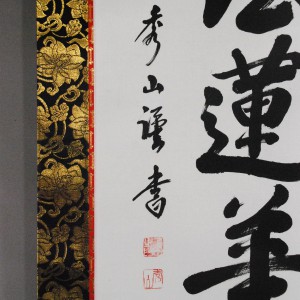 法蓮華
秀山謹書